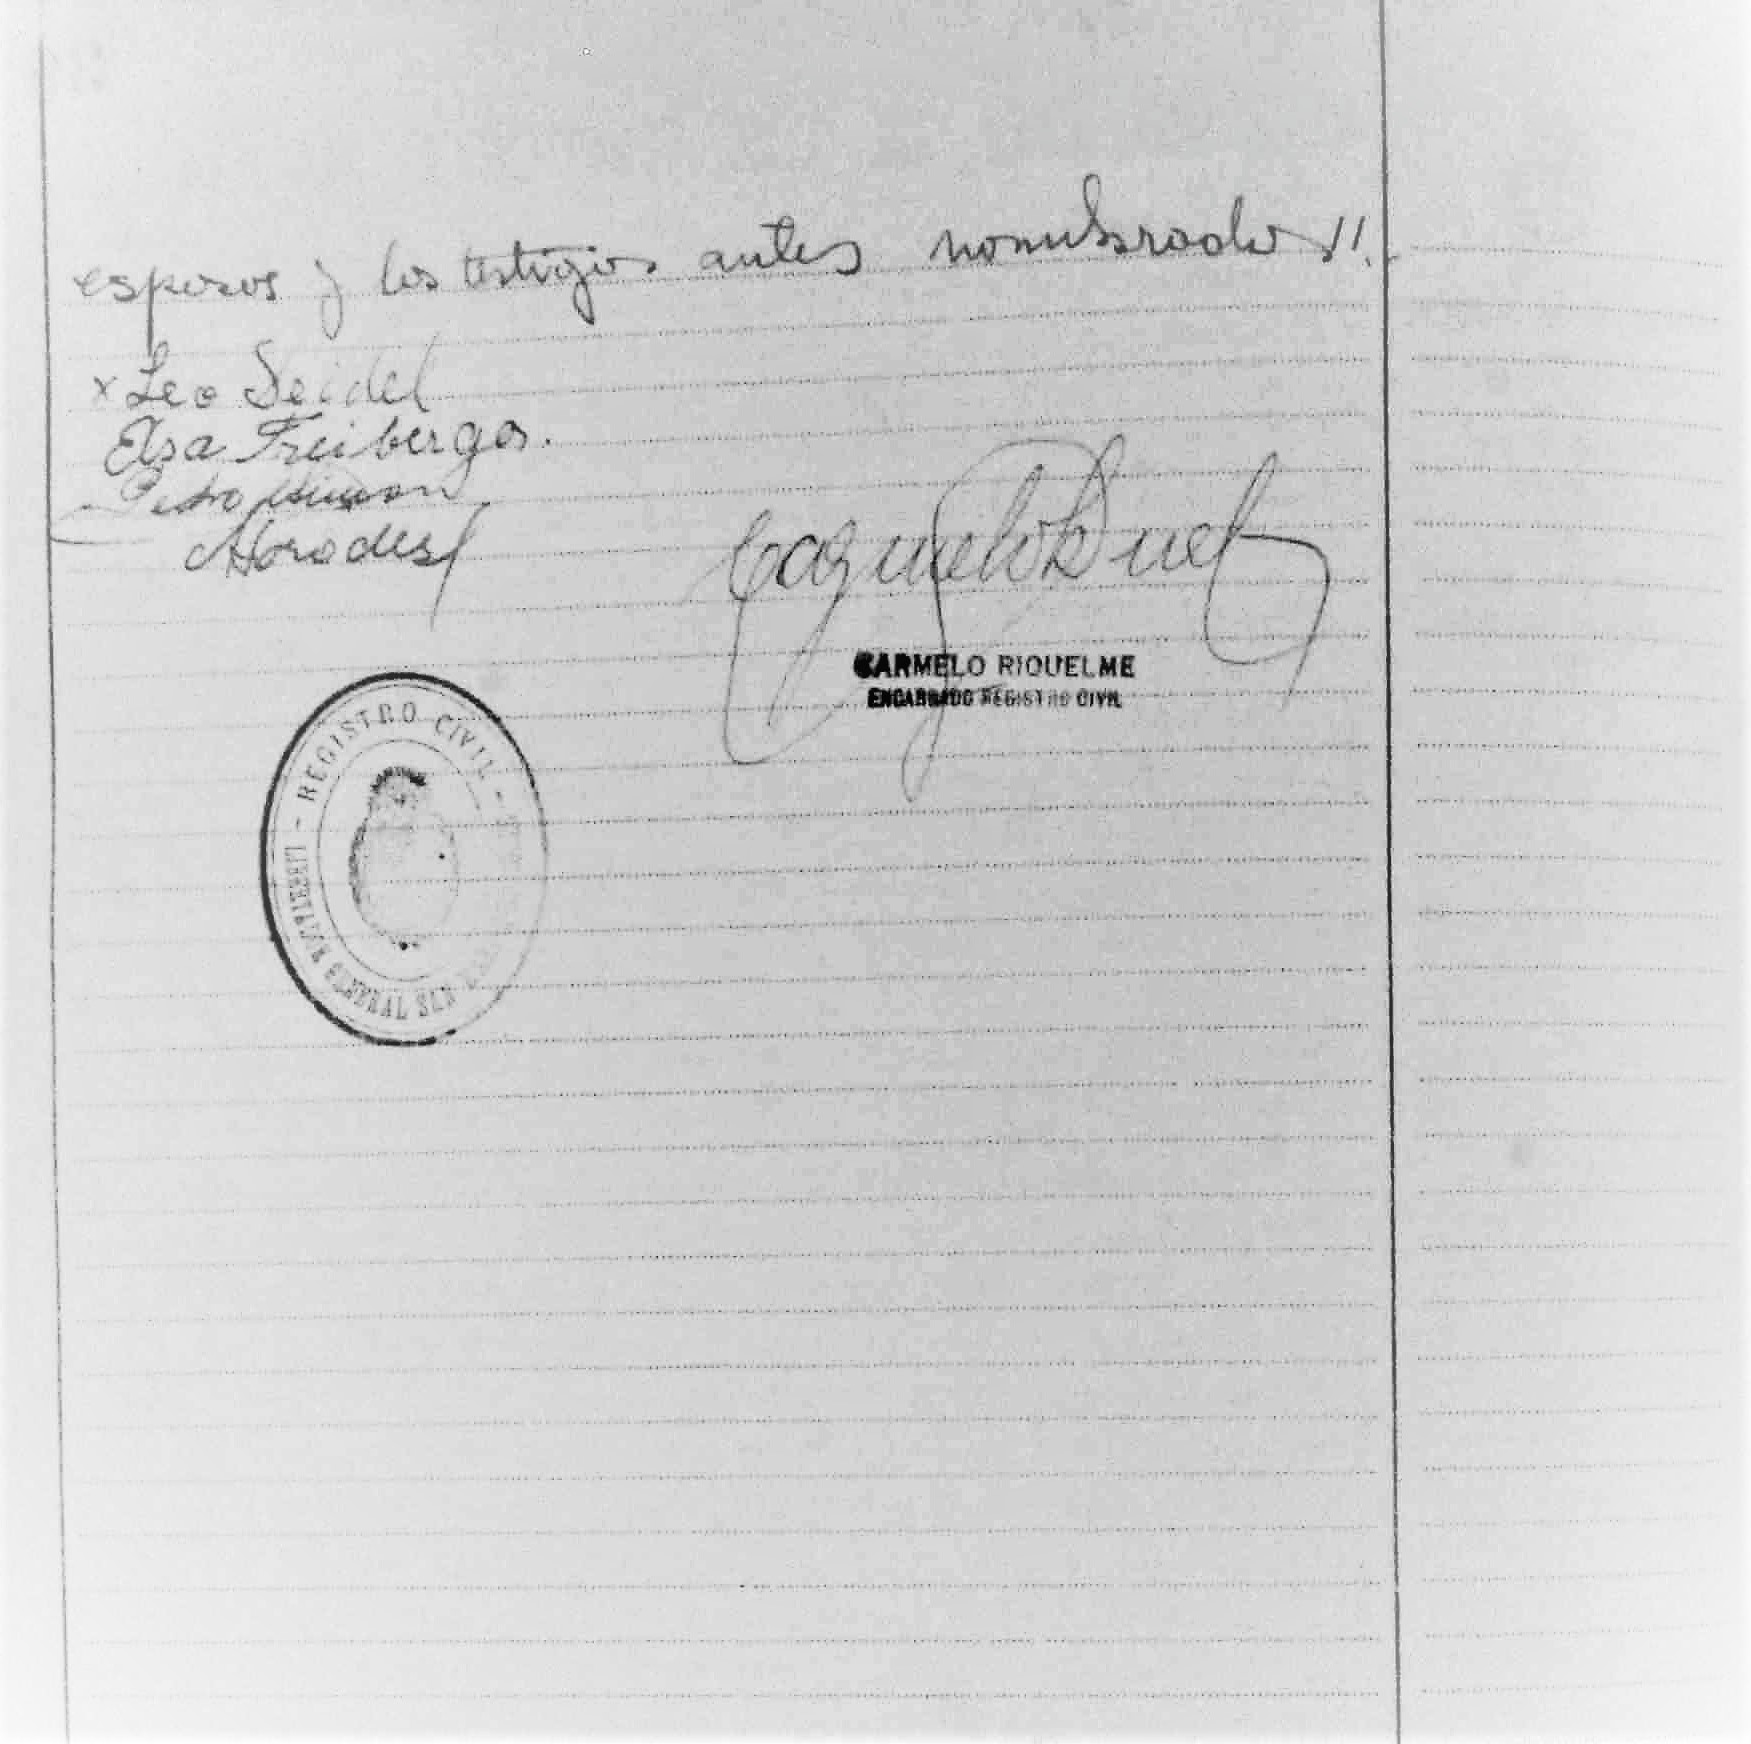 esposos y los testigos antes nombrados //.
x Leo Seidel
Elsa Freibergs.
Pedro
CARMELO RIQUELME
ENCARGADO REGISTRO CIVIL
- REGISTRO CIVIL -
GENERAL